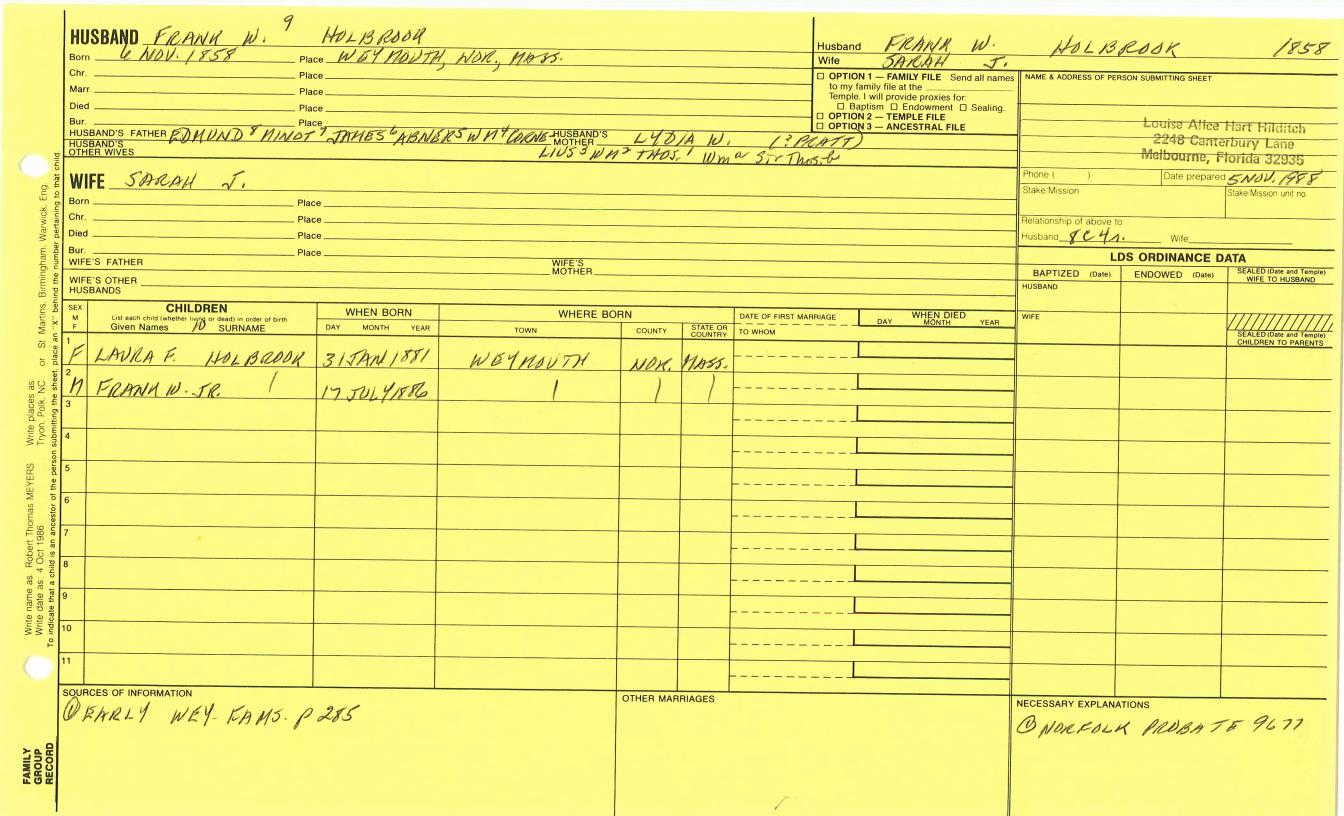 HUSBAND FRANK W. 9 HOLBROOK
Born 6 NOV. 1858 Place WEYMOUTH, NOR., MASS.
Chr. Place
Marr. Place
Died Place
Bur. Place
HUSBAND'S FATHER EDMUND 8 MINOT 7 JAMES 6 ABNER 5 WM 4 CORNE- HUSBAND'S MOTHER LYDIA W. (?PRATT)
HUSBAND'S OTHER WIVES LIUS 3 WM 2 THOS. 1 Wm a Sir Thos. b
WIFE SARAH J.
Born Place
Chr. Place
Died Place
Bur. Place
WIFE'S FATHER WIFE'S MOTHER
WIFE'S OTHER HUSBANDS
Husband FRANK W. HOLBROOK 1858
Wife SARAH J.
☐ OPTION 1 — FAMILY FILE Send all names
to my family file at the
Temple. I will provide proxies for:
☐ Baptism ☐ Endowment ☐ Sealing.
☐ OPTION 2 — TEMPLE FILE
☐ OPTION 3 — ANCESTRAL FILE
NAME & ADDRESS OF PERSON SUBMITTING SHEET
Louise Alice Hart Hilditch
2248 Canterbury Lane
Melbourne, Florida 32935
Phone ( ) Date prepared 5 NOV. 1988
Stake Mission Stake Mission unit no.
Relationship of above to
Husband 8C4r. Wife
LDS ORDINANCE DATA
BAPTIZED (Date) ENDOWED (Date) SEALED (Date and Temple) WIFE TO HUSBAND
HUSBAND
WIFE
SEALED (Date and Temple) CHILDREN TO PARENTS
SEX M F
CHILDREN
List each child (whether living or dead) in order of birth
Given Names 10 SURNAME
WHEN BORN
DAY MONTH YEAR
WHERE BORN
TOWN COUNTY STATE OR COUNTRY
DATE OF FIRST MARRIAGE
TO WHOM
WHEN DIED
DAY MONTH YEAR
1 F LAURA F. HOLBROOK 31 JAN 1881 WEYMOUTH NOR. MASS.
2 M FRANK W. JR. / 17 JULY 1886 | | |
3
4
5
6
7
8
9
10
11
SOURCES OF INFORMATION
① EARLY WEY- FAMS. P 285
OTHER MARRIAGES
NECESSARY EXPLANATIONS
① NORFOLK PROBATE 9677
Write name as: Robert Thomas MEYERS Write places as: Tryon, Polk, NC or St. Martins, Birmingham, Warwick, Eng.
Write date as: 4 Oct 1986
To indicate that a child is an ancestor of the person submitting the sheet, place an "X" behind the number pertaining to that child
FAMILY
GROUP
RECORD